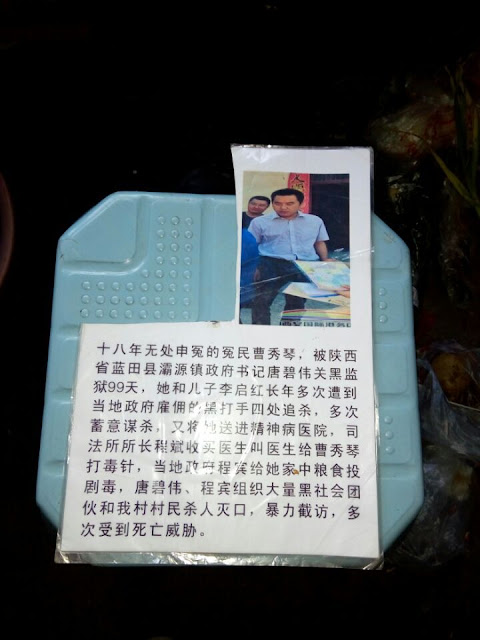 十八年无处申冤的冤民曹秀琴，被陕西
省蓝田县灞源镇政府书记唐碧伟关黑监
狱99天，她和儿子李启红长年多次遭到
当地政府雇佣的黑打手四处追杀，多次
蓄意谋杀，又将她送进精神病医院，司
法所所长程斌收买医生叫医生给曹秀琴
打毒针，当地政府程宾给她家中粮食投
剧毒，唐碧伟、程宾组织大量黑社会团
伙和我村村民杀人灭口，暴力截访，多
次受到死亡威胁。